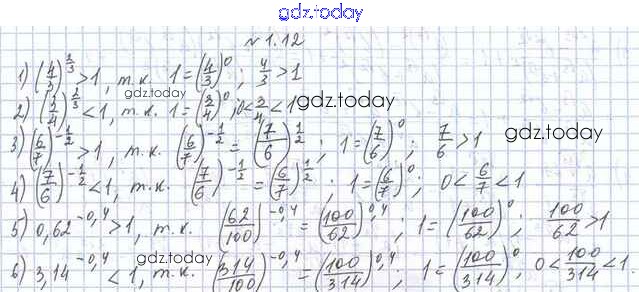 gdz.today
№ 1.12
1) (4/3)^(2/3) > 1, т.к. 1 = (4/3)^0; 4/3 > 1
2) (3/4)^(2/3) < 1, т.к. 1 = (3/4)^0; 0 < 3/4 < 1
gdz.today
gdz.today
3) (6/7)^(-1/2) > 1, т.к. (6/7)^(-1/2) = (7/6)^(1/2); 1 = (7/6)^0; 7/6 > 1
gdz.today
4) (7/6)^(-1/2) < 1, т.к. (7/6)^(-1/2) = (6/7)^(1/2); 1 = (6/7)^0; 0 < 6/7 < 1
gdz.today
5) 0,62^(-0,4) > 1, т.к. (62/100)^(-0,4) = (100/62)^(0,4); 1 = (100/62)^0; 100/62 > 1
gdz.today
6) 3,14^(-0,4) < 1, т.к. (314/100)^(-0,4) = (100/314)^(0,4); 1 = (100/314)^0; 0 < 100/314 < 1.
gdz.today
gdz.today